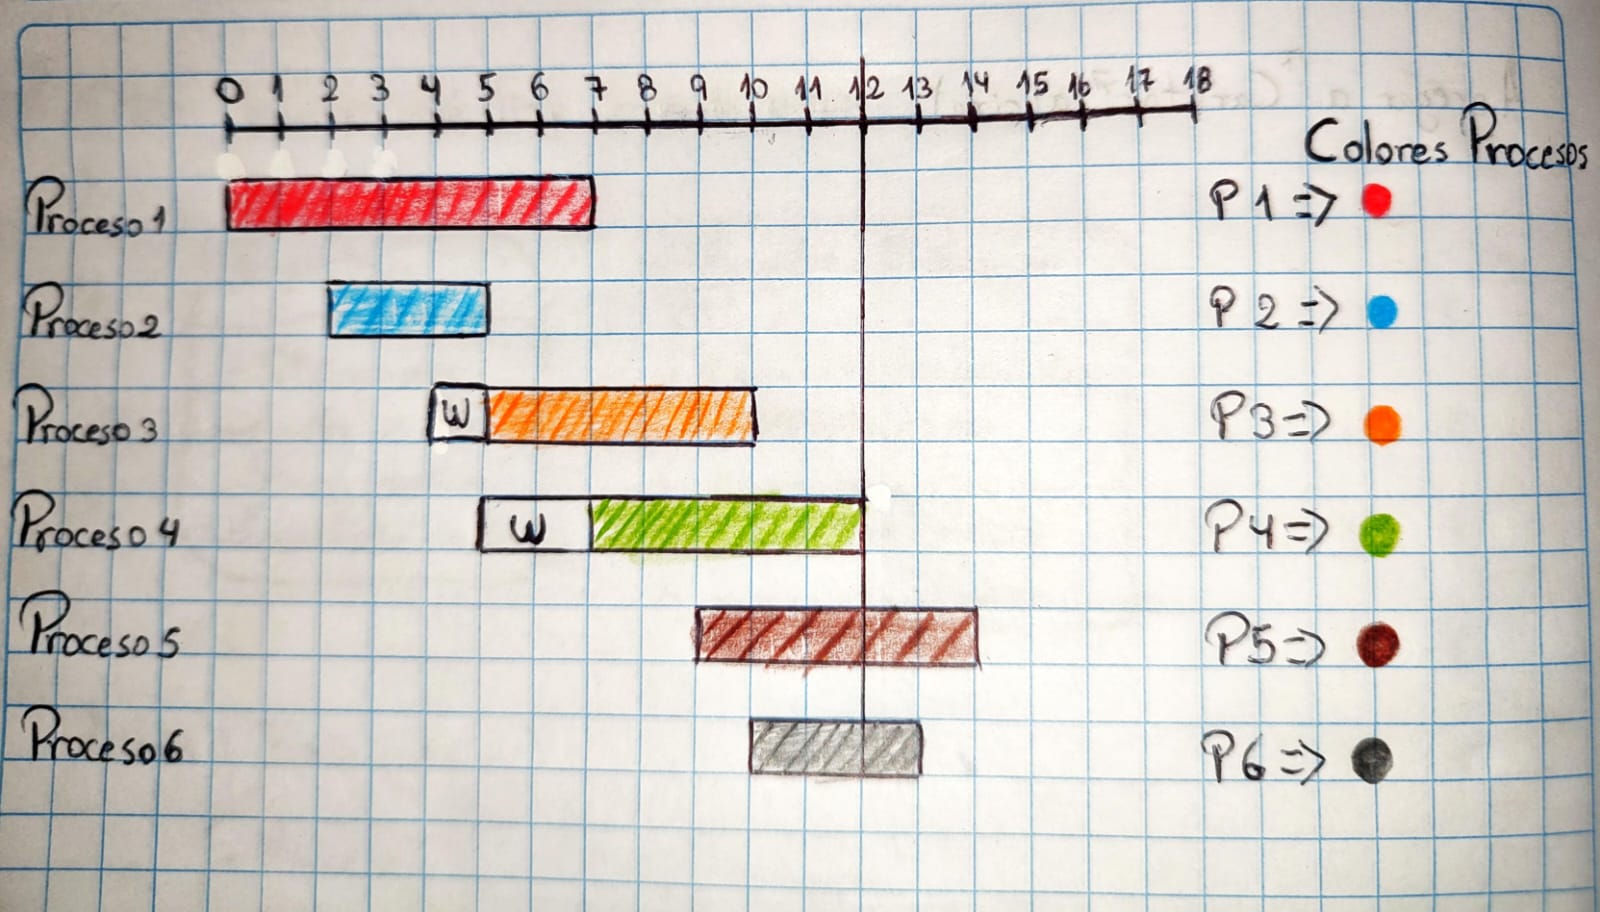 0 1 2 3 4 5 6 7 8 9 10 11 12 13 14 15 16 17 18
Colores Procesos
Proceso 1
P1 =>
Proceso 2
P2 =>
Proceso 3
W
P3 =>
Proceso 4
W
P4 =>
Proceso 5
P5 =>
Proceso 6
P6 =>